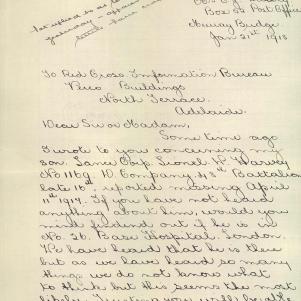 Box 52 Post Office
Murray Bridge
Jan 21st 1918
To Red Cross Information Bureau
Buildings
North Terrace
Adelaide.
Dear Sir or Madam,
Some time ago
I wrote to you concerning my
son. Lance Corp. Lionel W. Harvey
No 1169 D. Company 48th Battalion
late 16th, reported missing April
11th 1917. If you have not heard
anything about him, would you
mind finding out if he is in
No. 26. Hospital. London.
We have heard that he is there
but as we have heard so many
things we do not know what
to think but this seems the most